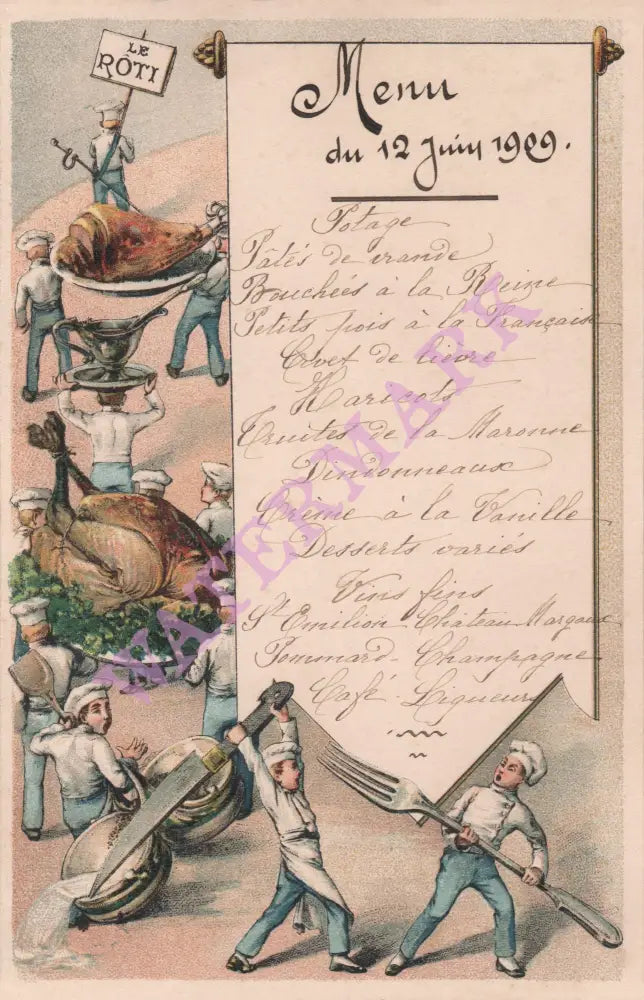 LE
RÔTI
Menu
du 12 Juin 1909.
Potage
Pâtés de viande
Bouchées à la Reine
Petits pois à la Française
Civet de lièvre
Haricots
Truites de la Maronne
Dindonneaux
Crème à la Vanille
Desserts variés
Vins fins
St Emilion Château Margaux
Pommard - Champagne
Café - Liqueurs
WATERMARK